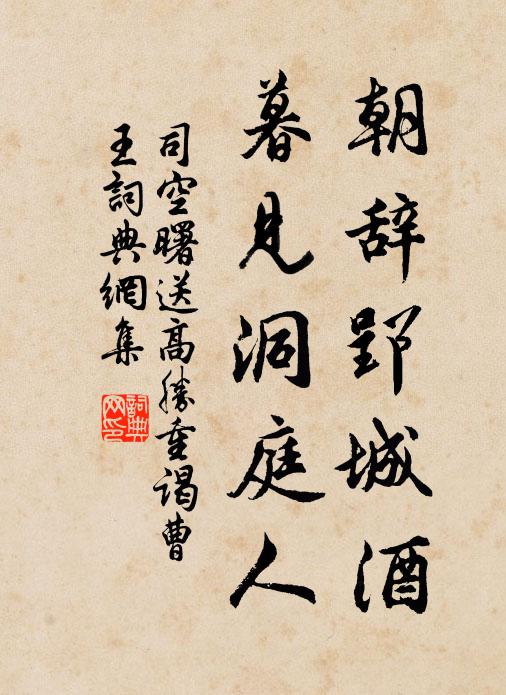 朝辞郢城酒
暮見洞庭人
司空曙送高勝重謁曹
王詞典網集
詞典网印